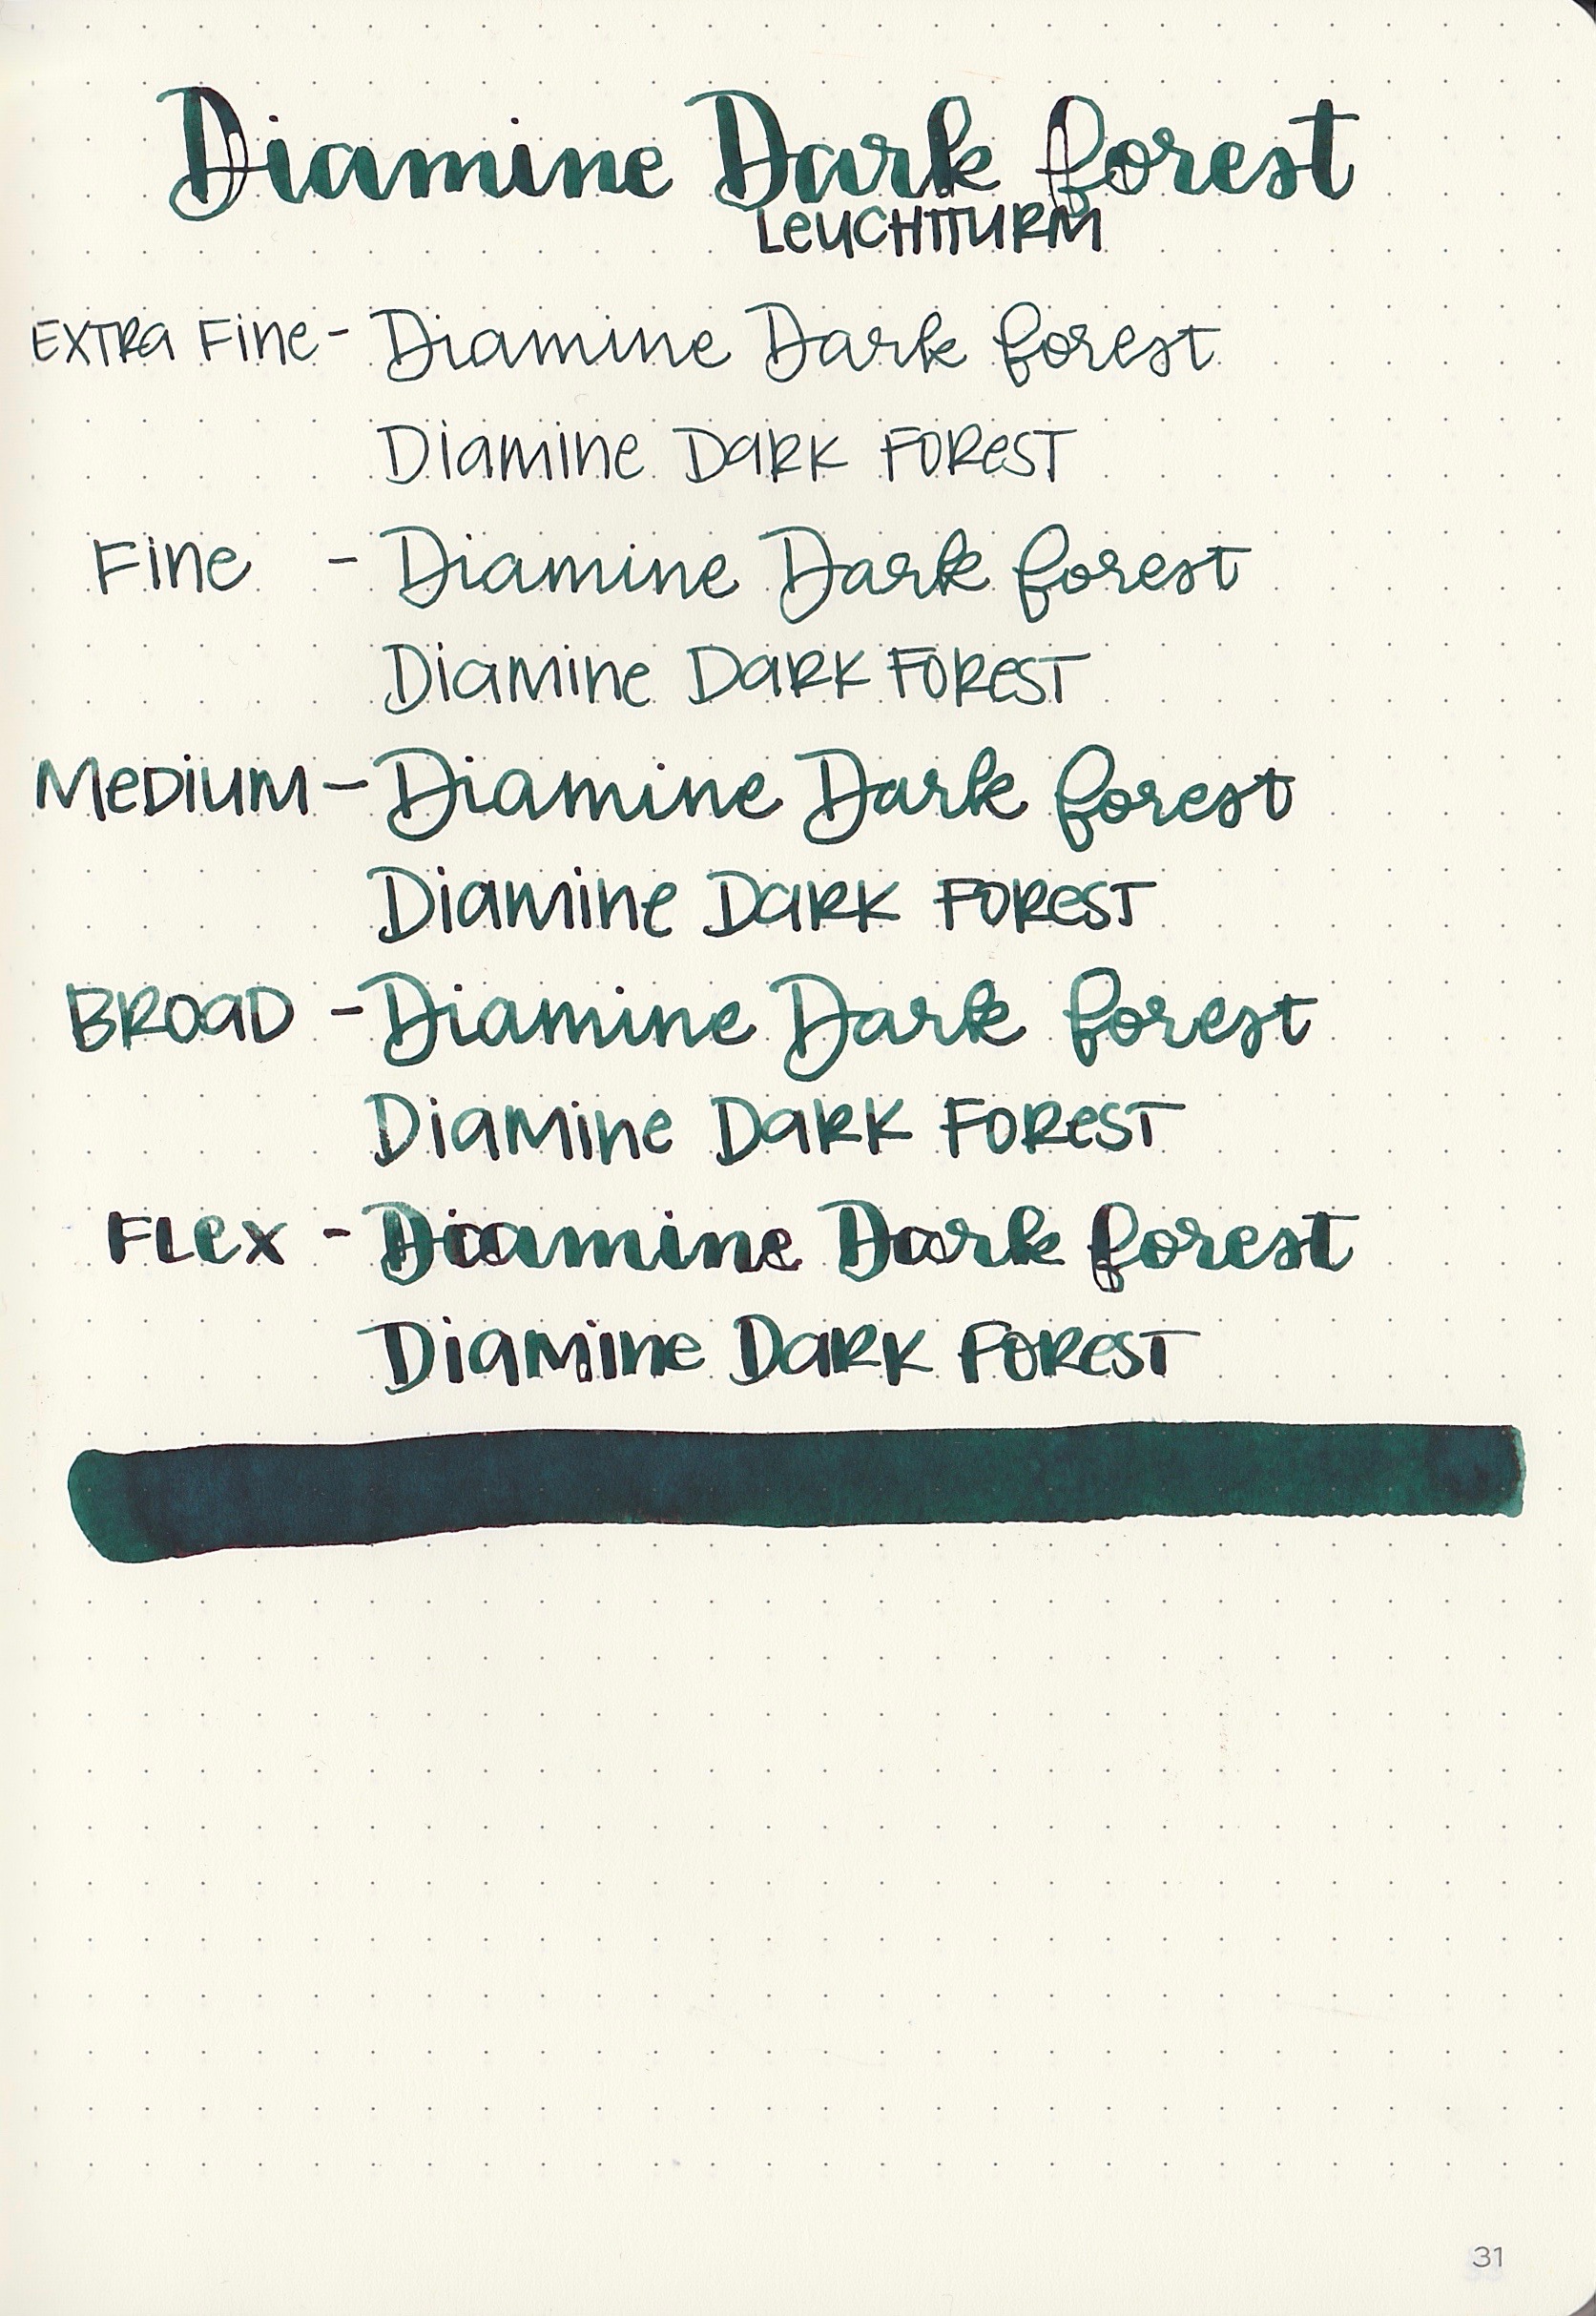 Diamine Dark forest
LeUCHTTURM
EXTRa Fine - Diamine Dark forest
Diamine DaRK FOReST
Fine - Diamine Dark forest
Diamine DaRK FOReST
MeDIUM - Diamine Dark forest
Diamine DaRK FOReST
BROaD - Diamine Dark forest
Diamine DaRK FOReST
FLex - Diamine Dark forest
Diamine DaRK FOReST
31